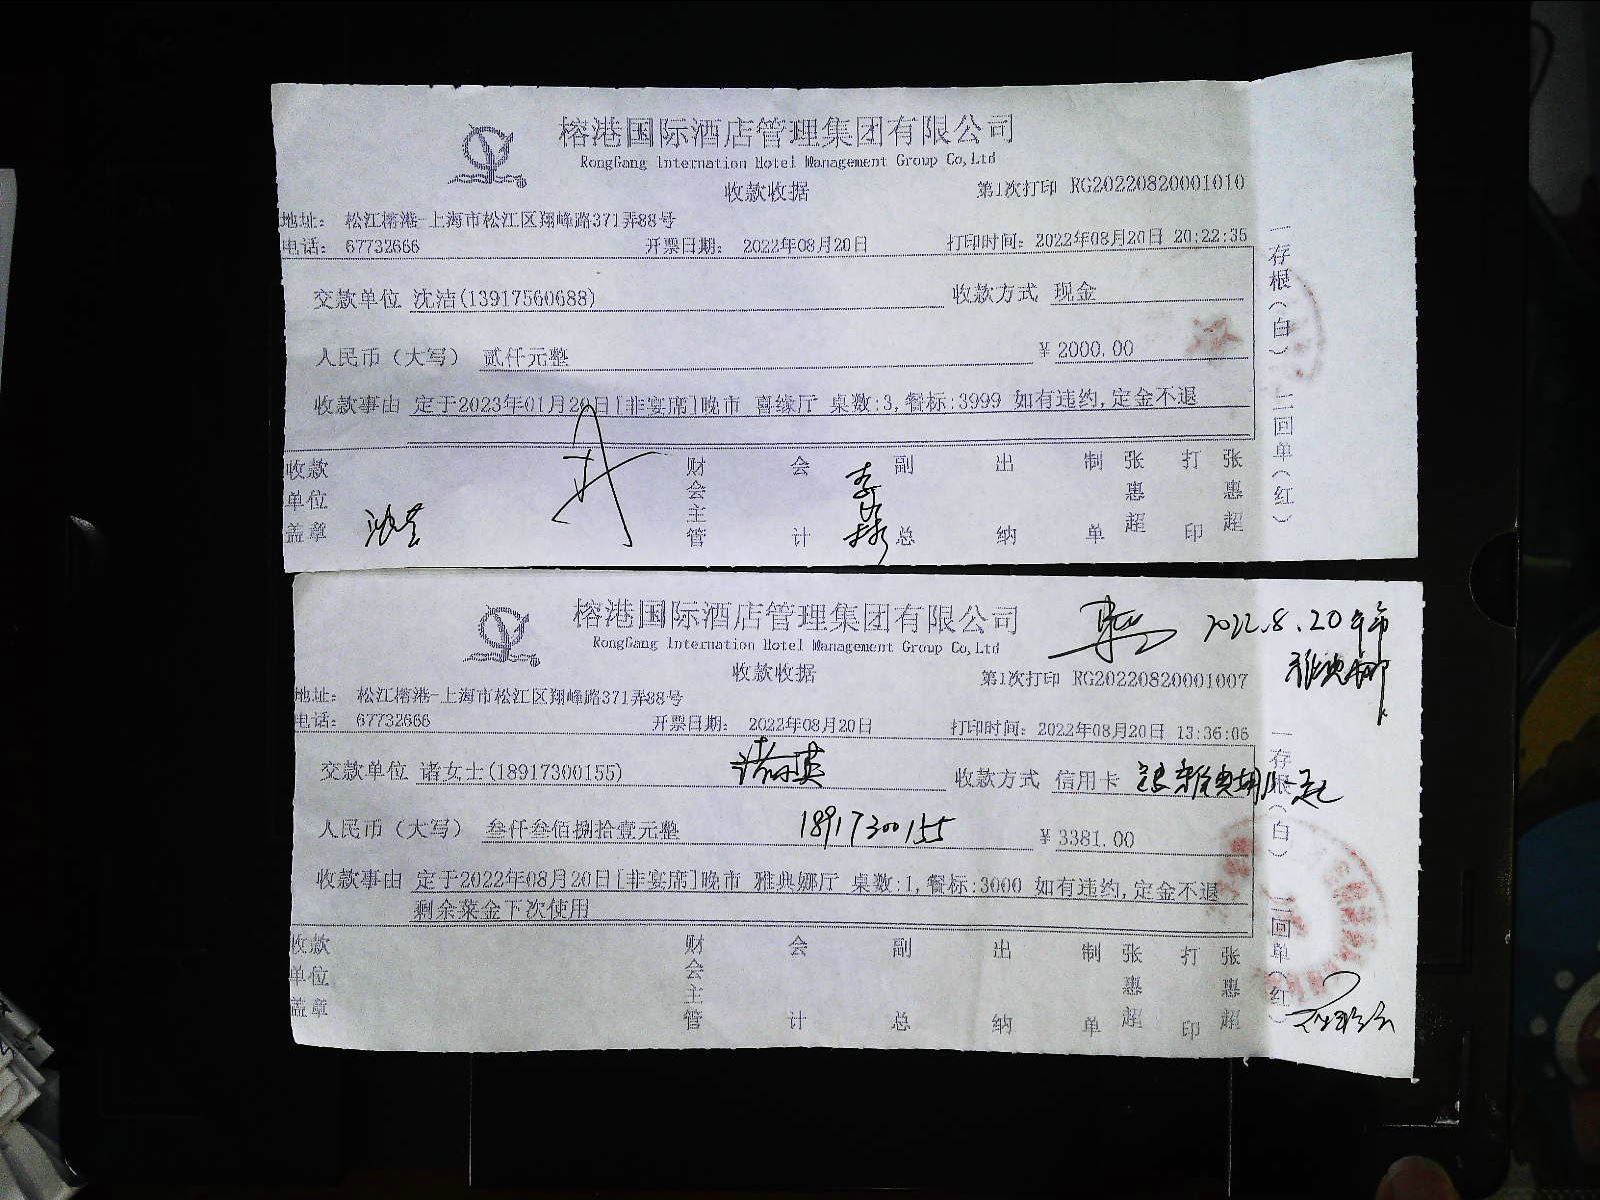 榕港国际酒店管理集团有限公司
RongGang Internation Hotel Management Group Co,Ltd
收款收据
第1次打印 RG20220820001010
地址： 松江榕港-上海市松江区翔峰路371弄88号
电话： 67732666 开票日期： 2022年08月20日 打印时间：2022年08月20日 20:22:35
交款单位 沈洁(13917560688) 收款方式 现金
人民币（大写） 贰仟元整 ￥2000.00
收款事由 定于2023年01月20日[非宴席]晚市 喜缘厅 桌数:3,餐标:3999 如有违约,定金不退
收款单位盖章 财会主管 会计 副总 出纳 制单 张惠超 打印 张惠超
一存根(白) 二回单(红)
榕港国际酒店管理集团有限公司
RongGang Internation Hotel Management Group Co,Ltd
2022.8.20
收款收据
第1次打印 RG20220820001007
地址： 松江榕港-上海市松江区翔峰路371弄88号
电话： 67732666 开票日期： 2022年08月20日 打印时间：2022年08月20日 13:36:06
交款单位 诸女士(18917300155) 收款方式 信用卡
人民币（大写） 叁仟叁佰捌拾壹元整 18917300155 ￥3381.00
收款事由 定于2022年08月20日[非宴席]晚市 雅典娜厅 桌数:1,餐标:3000 如有违约,定金不退
剩余菜金下次使用
收款单位盖章 财会主管 会计 副总 出纳 制单 张惠超 打印 张惠超
一存根(白) 二回单(红)